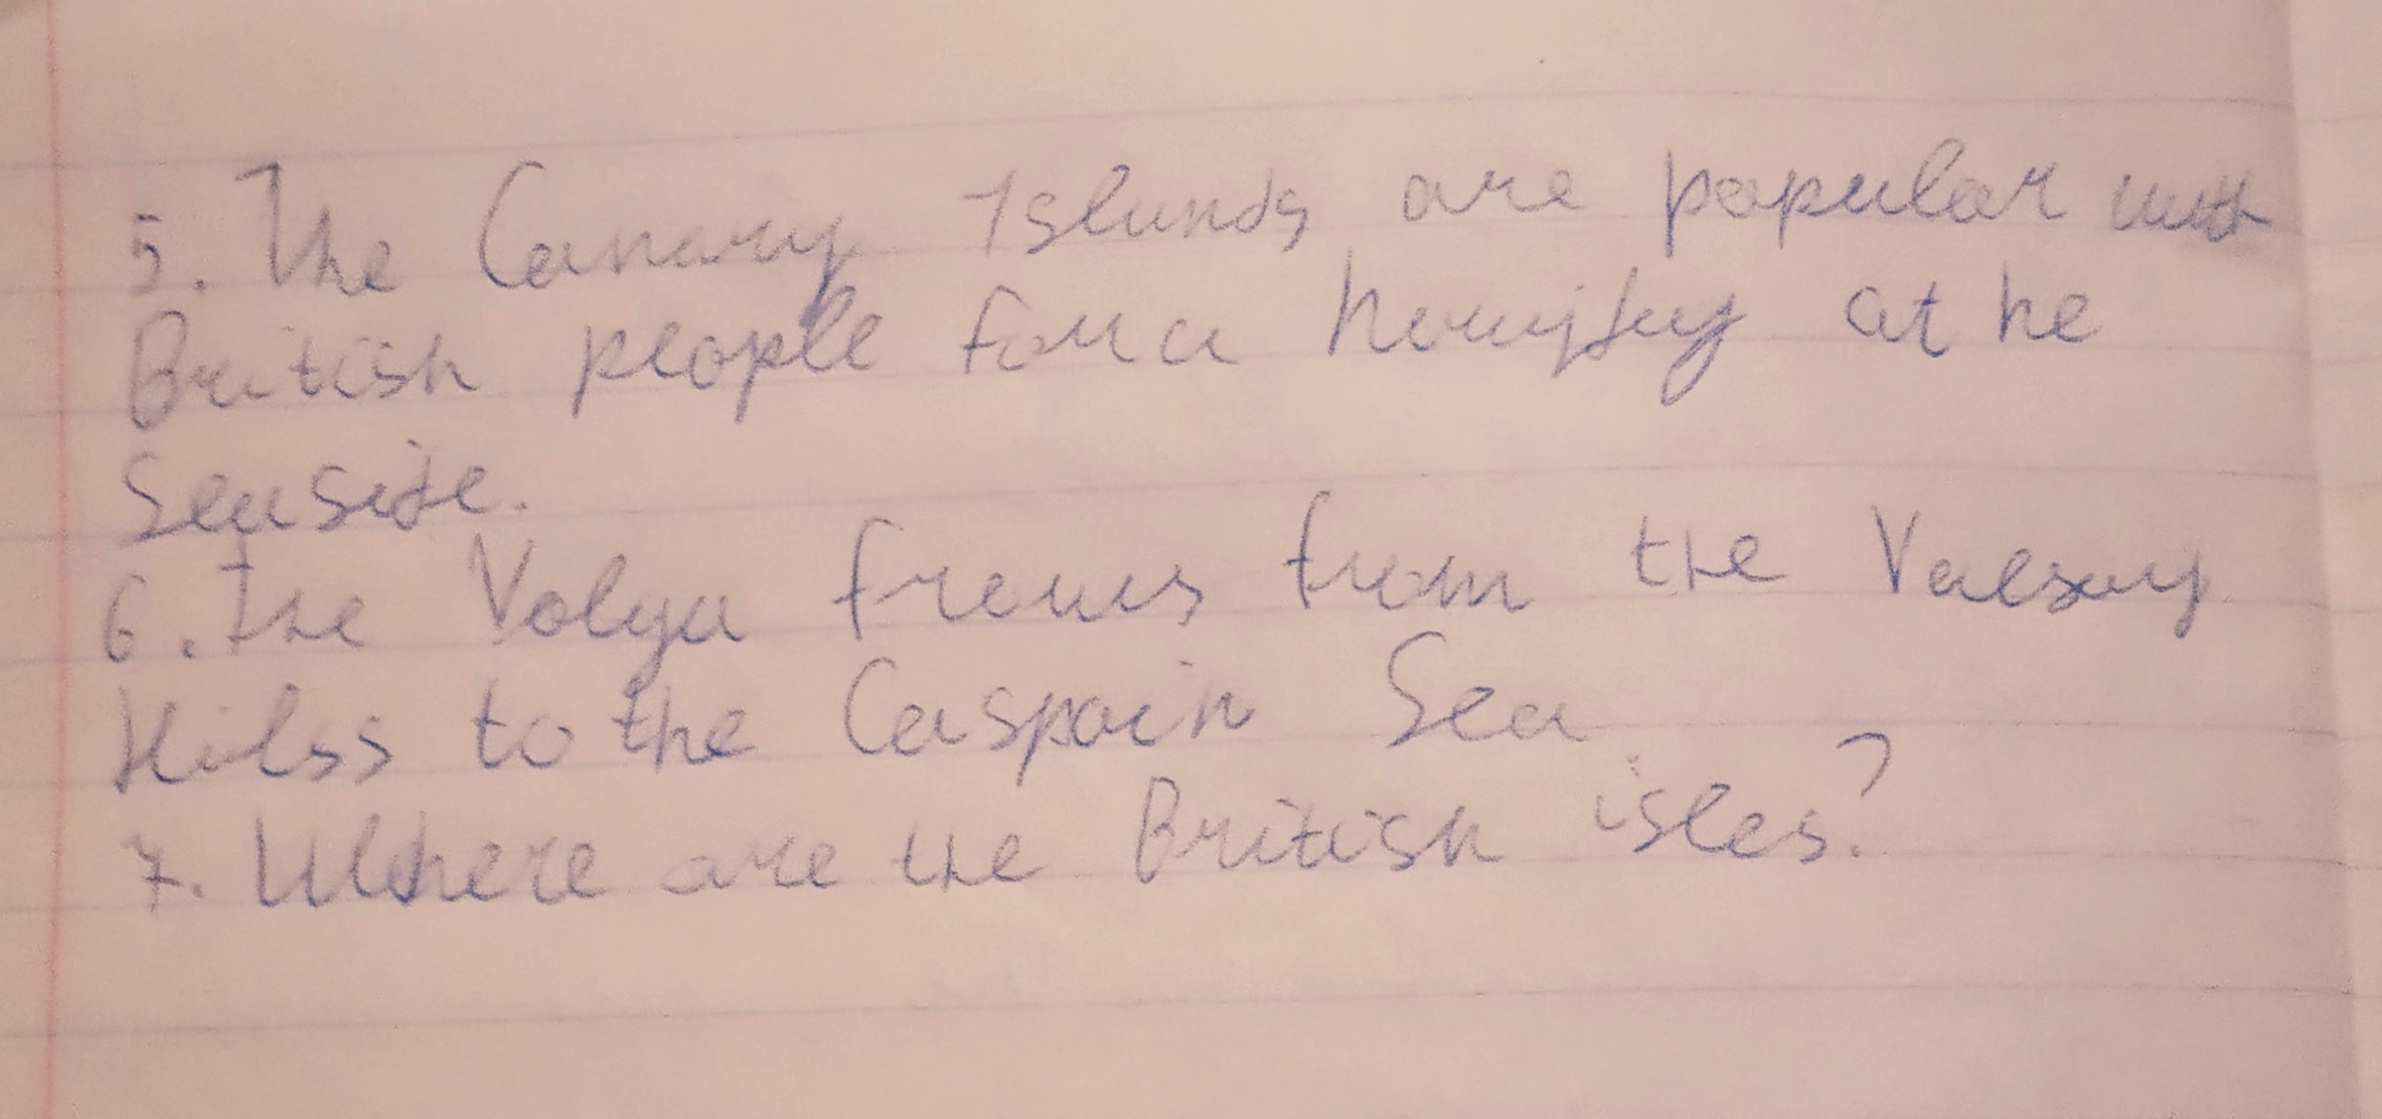 5. The Canary Islands are popular with
British people for a at he
Seaside.
6. The Volga from the
Hilss to the Caspain Sea.
7. Where are the British isles?